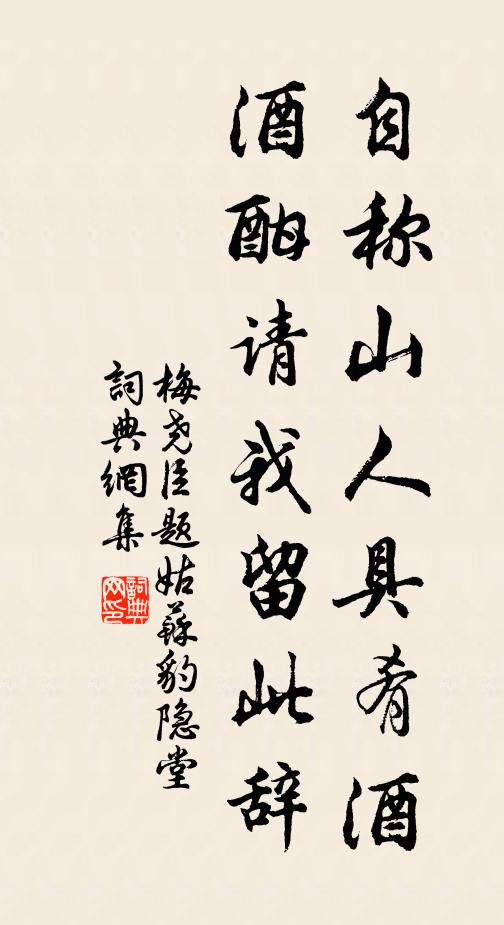 自称山人具肴酒
酒酣请我留此辞
梅尧臣题姑蘇豹隐堂
詞典網集
詞典网印